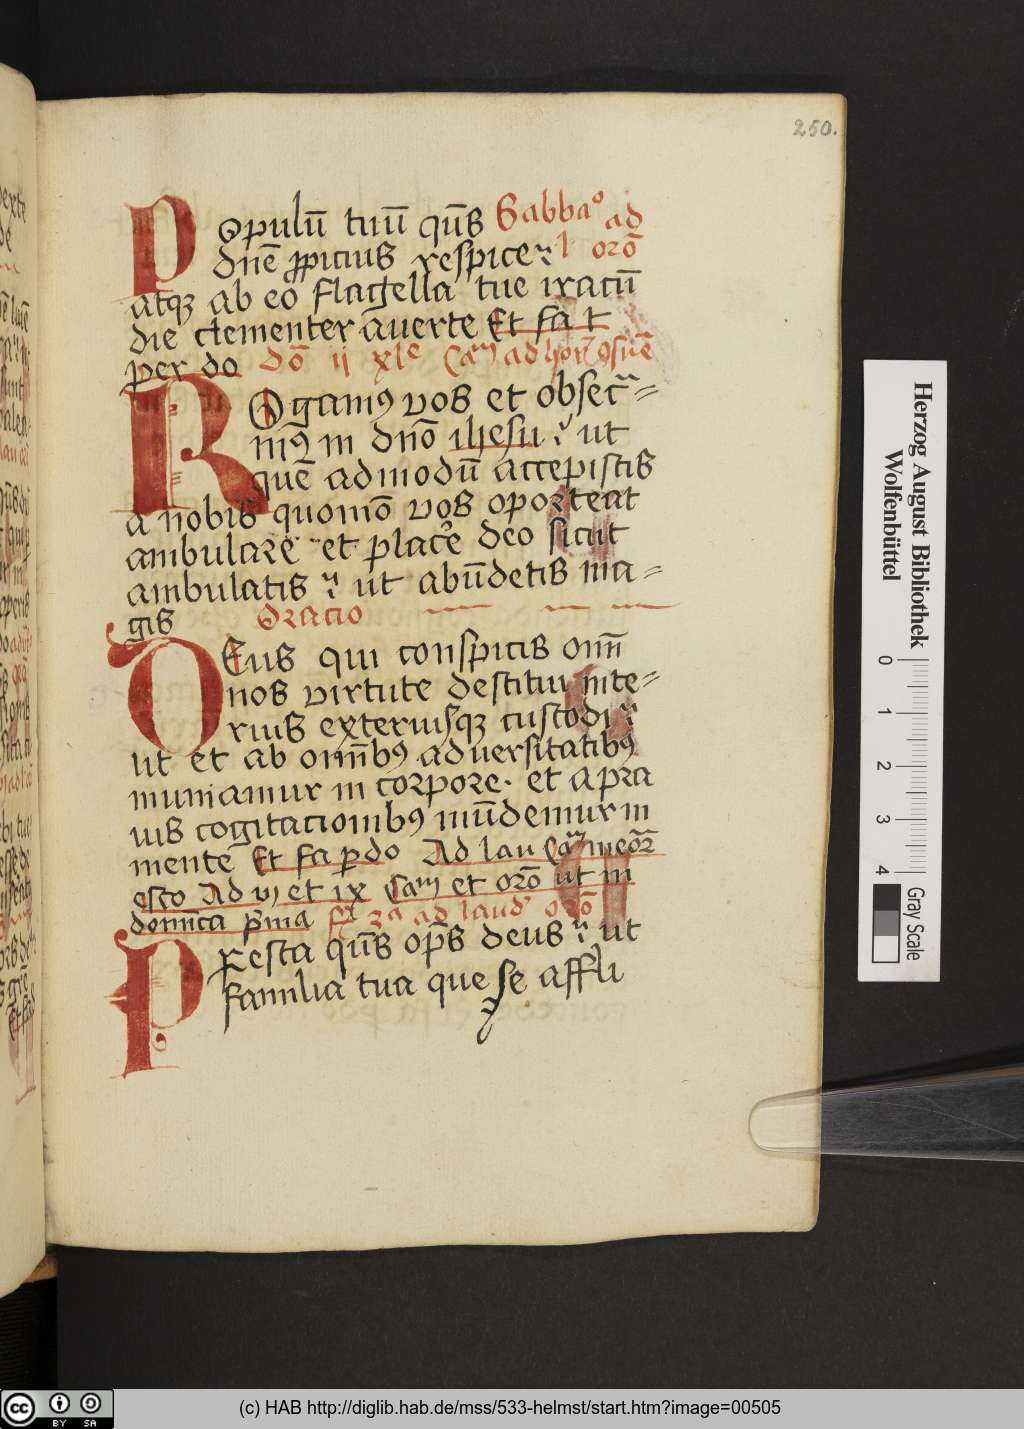 250.
Populū tuū qūs Sabbaᵒ ad
dnē ꝓpicius respice l orō
atqꝫ ab eo flagella tue iracū
die clementer auerte Et fa t
per do dō ij xlᵉ
Rogamꝰ vos et obsec
mꝰ in dnō ihesu ut
quē admodū accepistis
a nobis quomō vos oporteat
ambulare et placᵉe deo sicut
ambulatis ut abūdetis ma
gis Oracio
DEus qui conspicis omī
nos virtute destitui inte
rius exteriusqꝫ custodi
ut et ab omībꝰ aduersitatibꝰ
muniamur in corpore et a pra
uis cogitacionibꝰ mūdemur in
mente Et fa ꝑ do Ad lau Caᵐ meoꝝ
esto Ad vj et ix Caᵐ et orō ut in
domīca pͥma ad laud orō
Presta qūs opͣs deus ut
familia tua que se affli
Herzog August Bibliothek
Wolfenbüttel
0 1 2 3 4
Gray Scale
cc BY SA
(c) HAB http://diglib.hab.de/mss/533-helmst/start.htm?image=00505